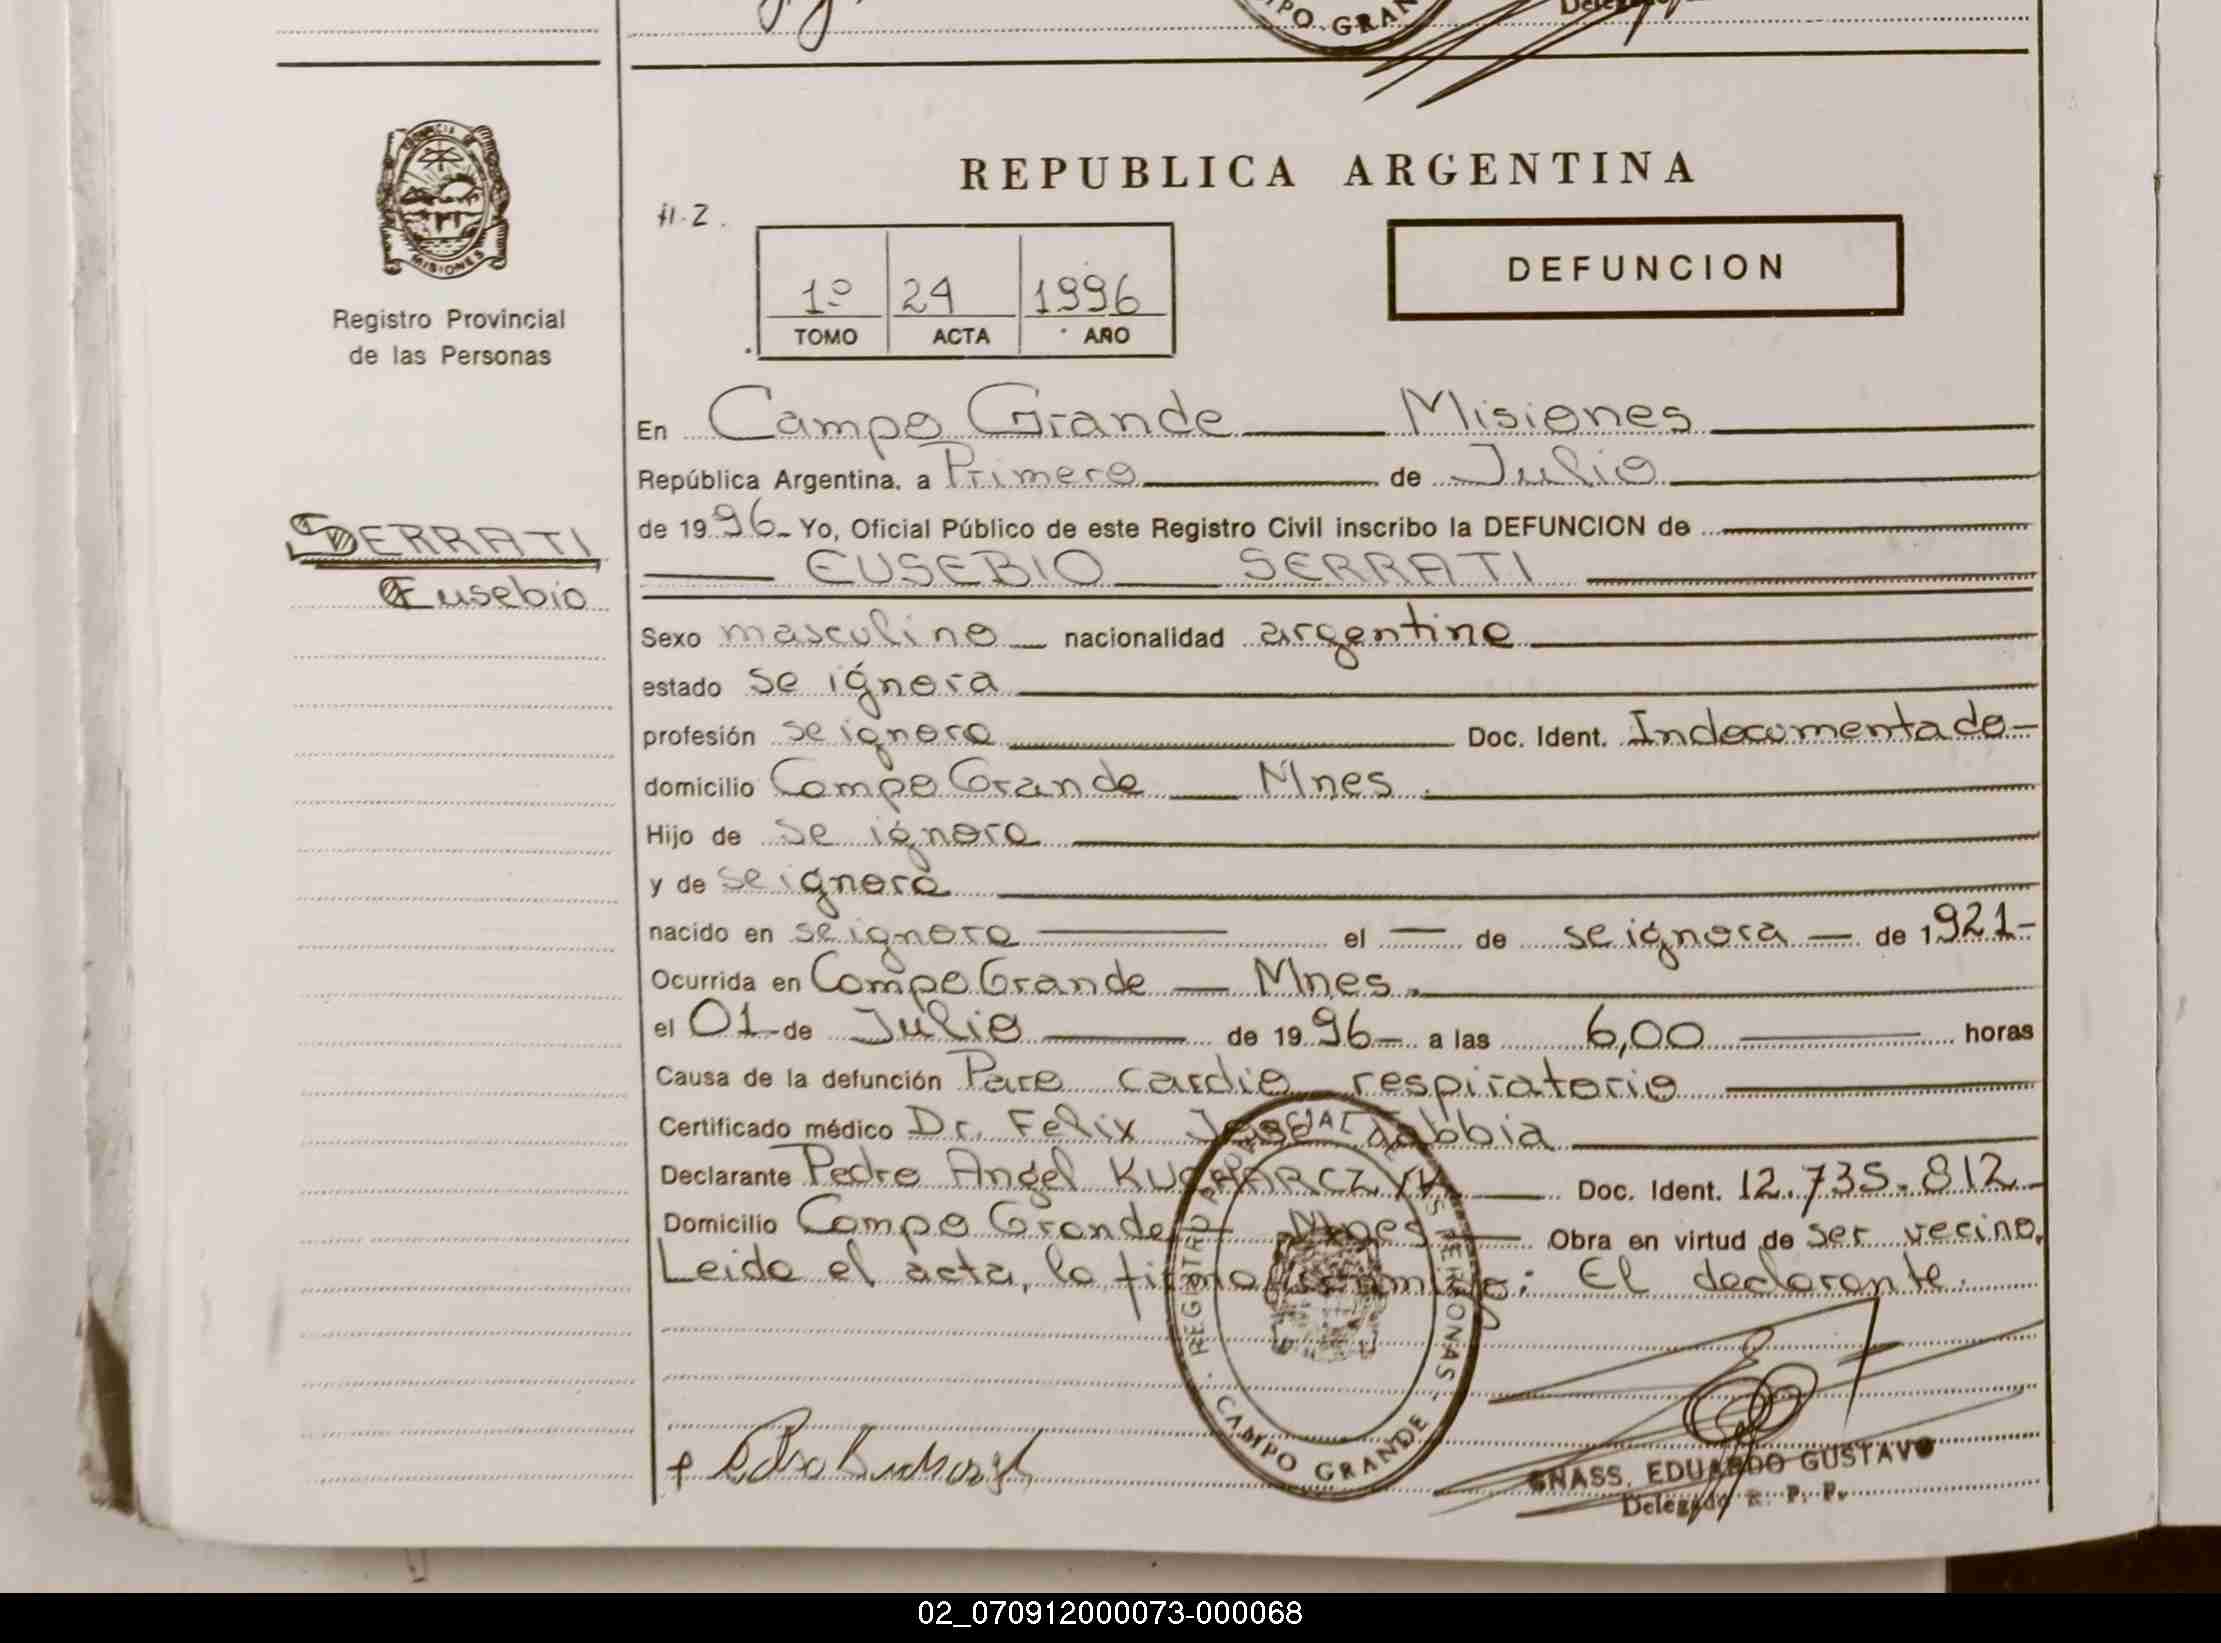 Delegado
CAMPO GRANDE
PROVINCIA DE
MISIONES
Registro Provincial
de las Personas
SERRATI
Eusebio
REPUBLICA ARGENTINA
H.2.
1º 24 1996
TOMO ACTA AÑO
DEFUNCION
En Campo Grande Misiones
República Argentina, a Primero de Julio
de 1996 Yo, Oficial Público de este Registro Civil inscribo la DEFUNCION de
EUSEBIO SERRATI
Sexo masculino nacionalidad argentino
estado se ignora
profesión se ignora Doc. Ident. Indocumentado
domicilio Campo Grande Mnes.
Hijo de se ignora
y de se ignora
nacido en se ignora el — de se ignora de 1921
Ocurrida en Campo Grande Mnes.
el 01 de Julio de 1996 a las 6,00 horas
Causa de la defunción Paro cardio respiratorio
Certificado médico Dr. Felix Jabbia
Declarante Pedro Angel Doc. Ident. 12.735.812
Domicilio Campo Grande Mnes Obra en virtud de ser vecino.
Leido el acta, lo firma conmigo: El declarante.
REGISTRO PROVINCIAL DE LAS PERSONAS
CAMPO GRANDE
GNASS, EDUARDO GUSTAVO
Delegado R. P. P.
02_070912000073-000068